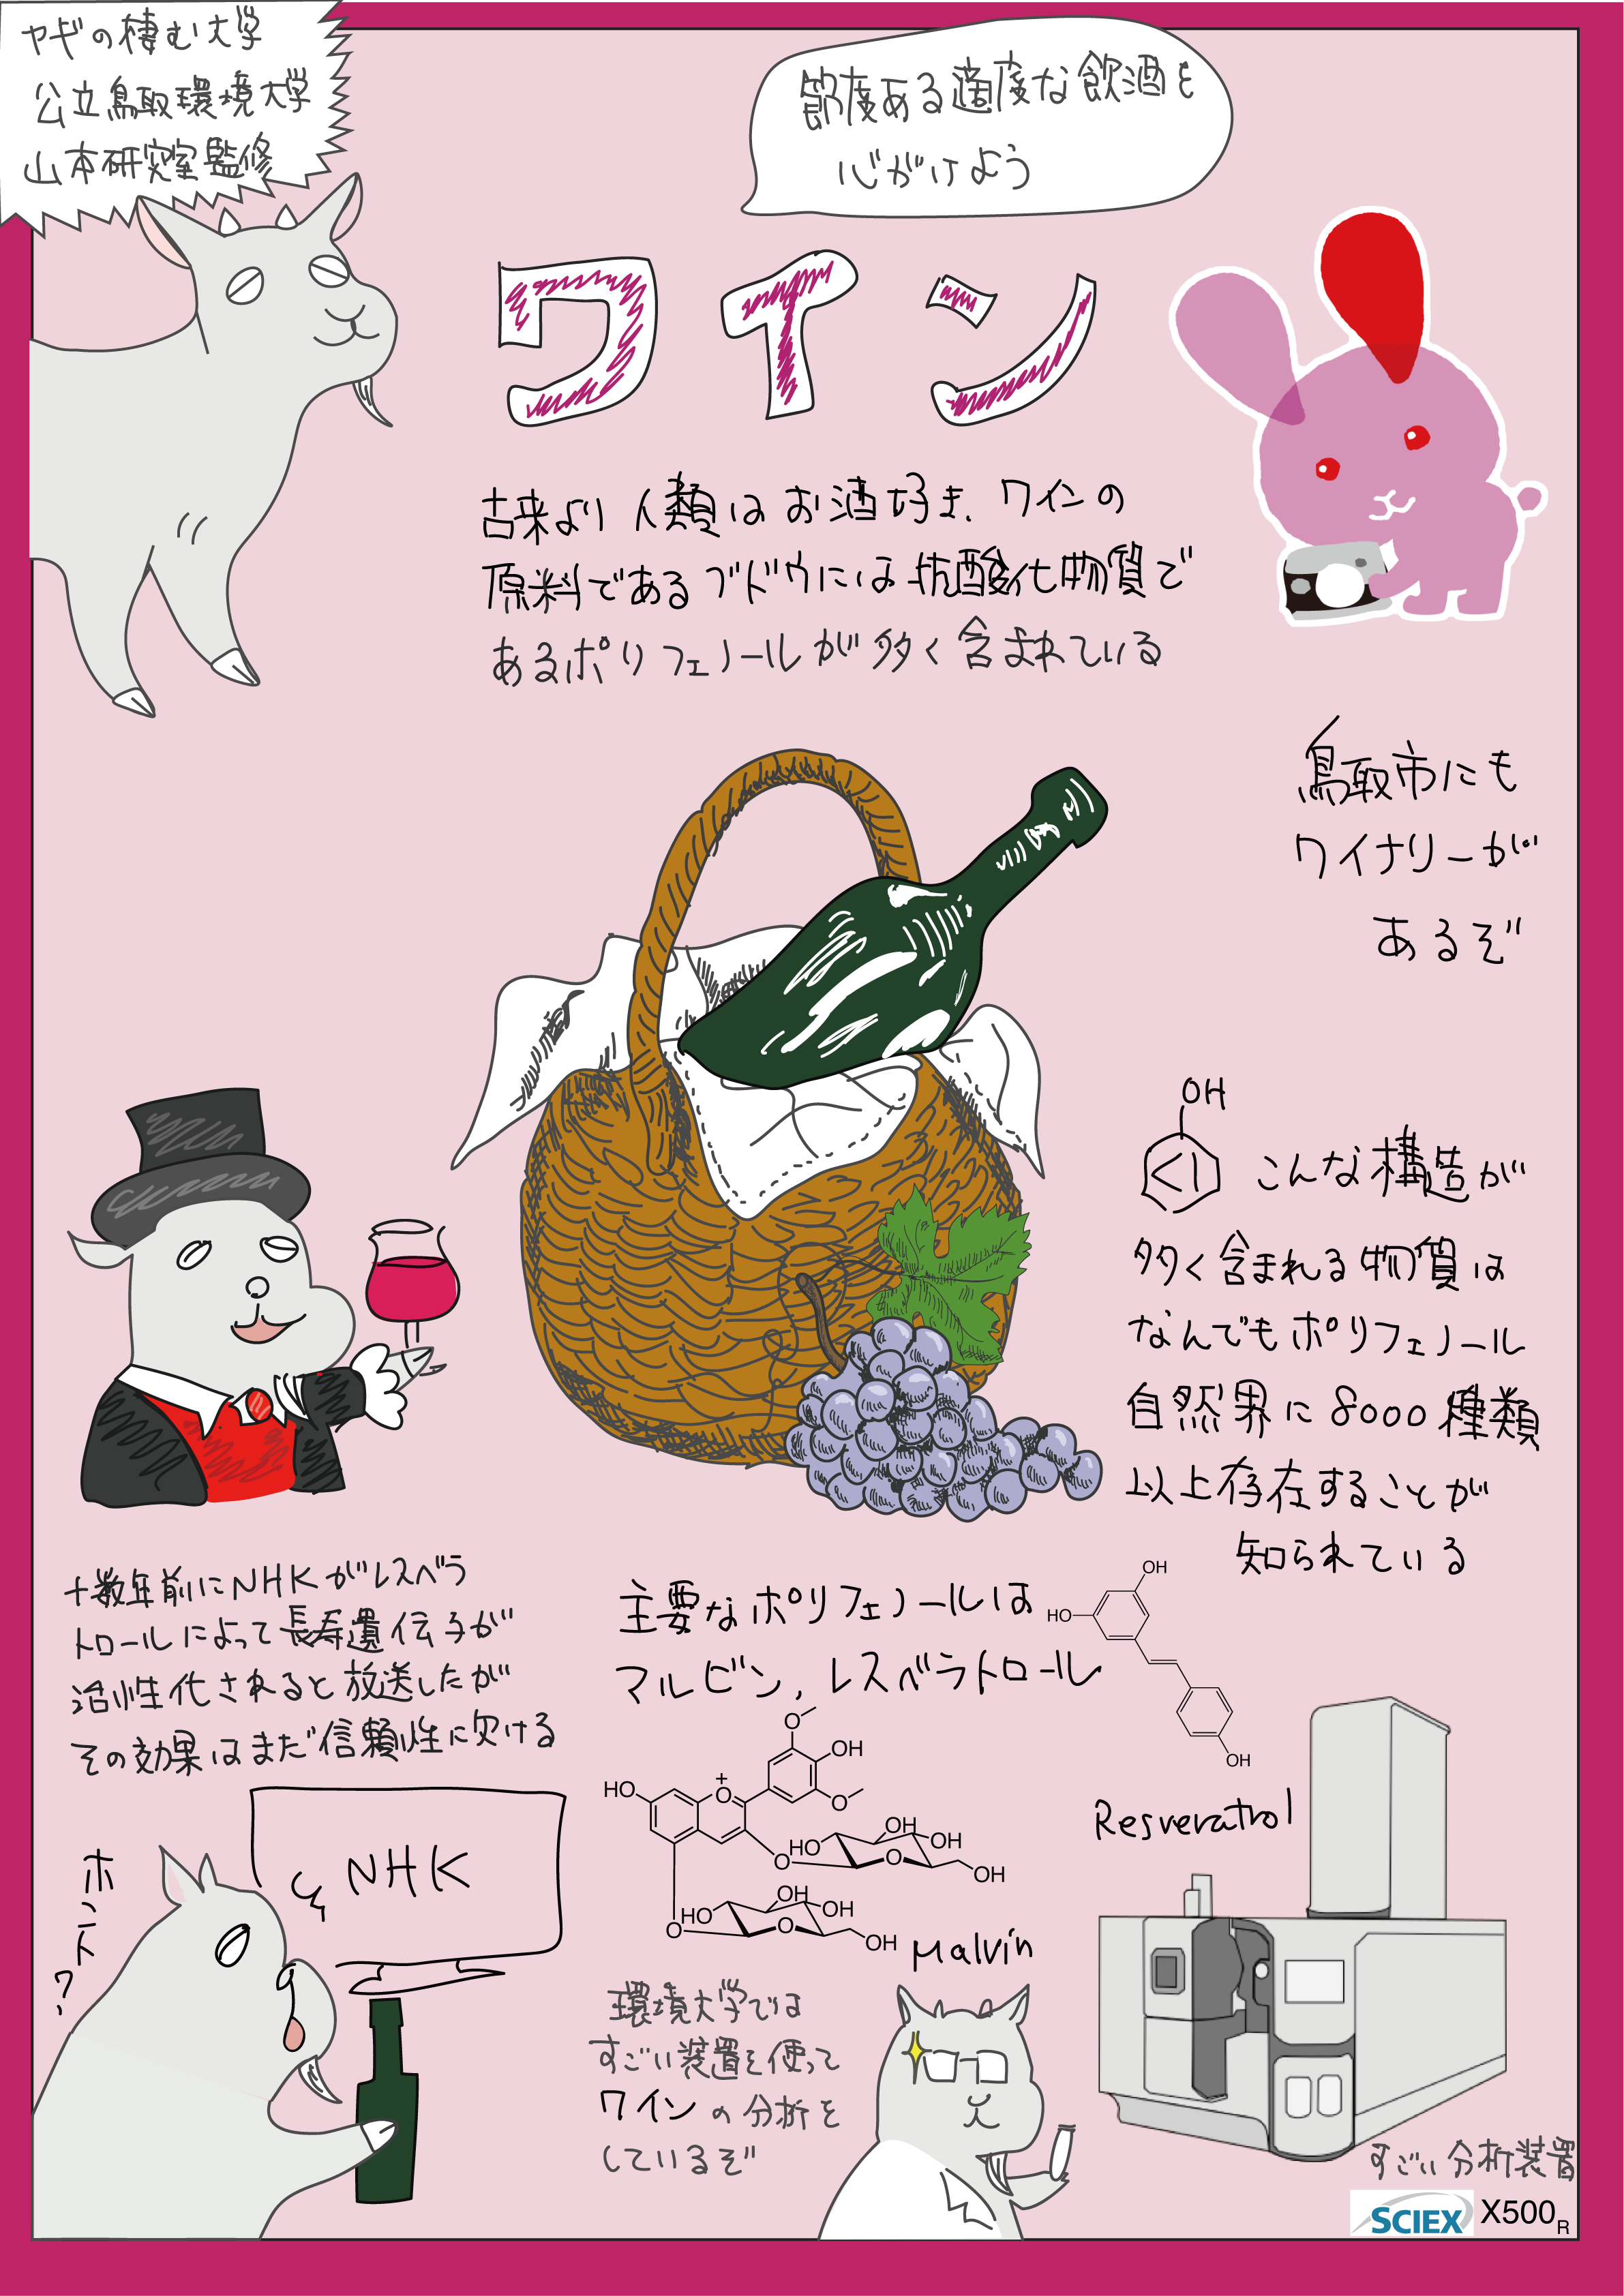 ヤギの棲む大学
公立鳥取環境大学
山本研究室監修
節度ある適度な飲酒を
心がけよう
ワイン
古来より人類はお酒好き、ワインの
原料であるブドウには抗酸化物質で
あるポリフェノールが多く含まれている
鳥取市にも
ワイナリーが
あるぞ
OH
こんな構造が
多く含まれる物質は
なんでもポリフェノール
自然界に8000種類
以上存在することが
知られている
十数年前にNHKがレスベラ
トロールによって長寿遺伝子が
活性化されると放送したが
その効果はまだ信頼性に欠ける
主要なポリフェノールは
マルビン,レスベラトロール
OH
HO
OH
Resveratrol
O
OH
O
HO
O
+
O
HO
OH
OH
O
OH
O
HO
OH
OH
O
OH
Malvin
NHK
ホント?
環境大学では
すごい装置を使って
ワインの分析を
しているぞ
すごい分析装置
SCIEX X500R